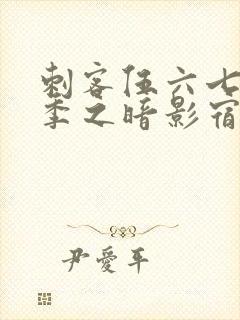 刺客伍六七
季之暗影宿
尹愛平